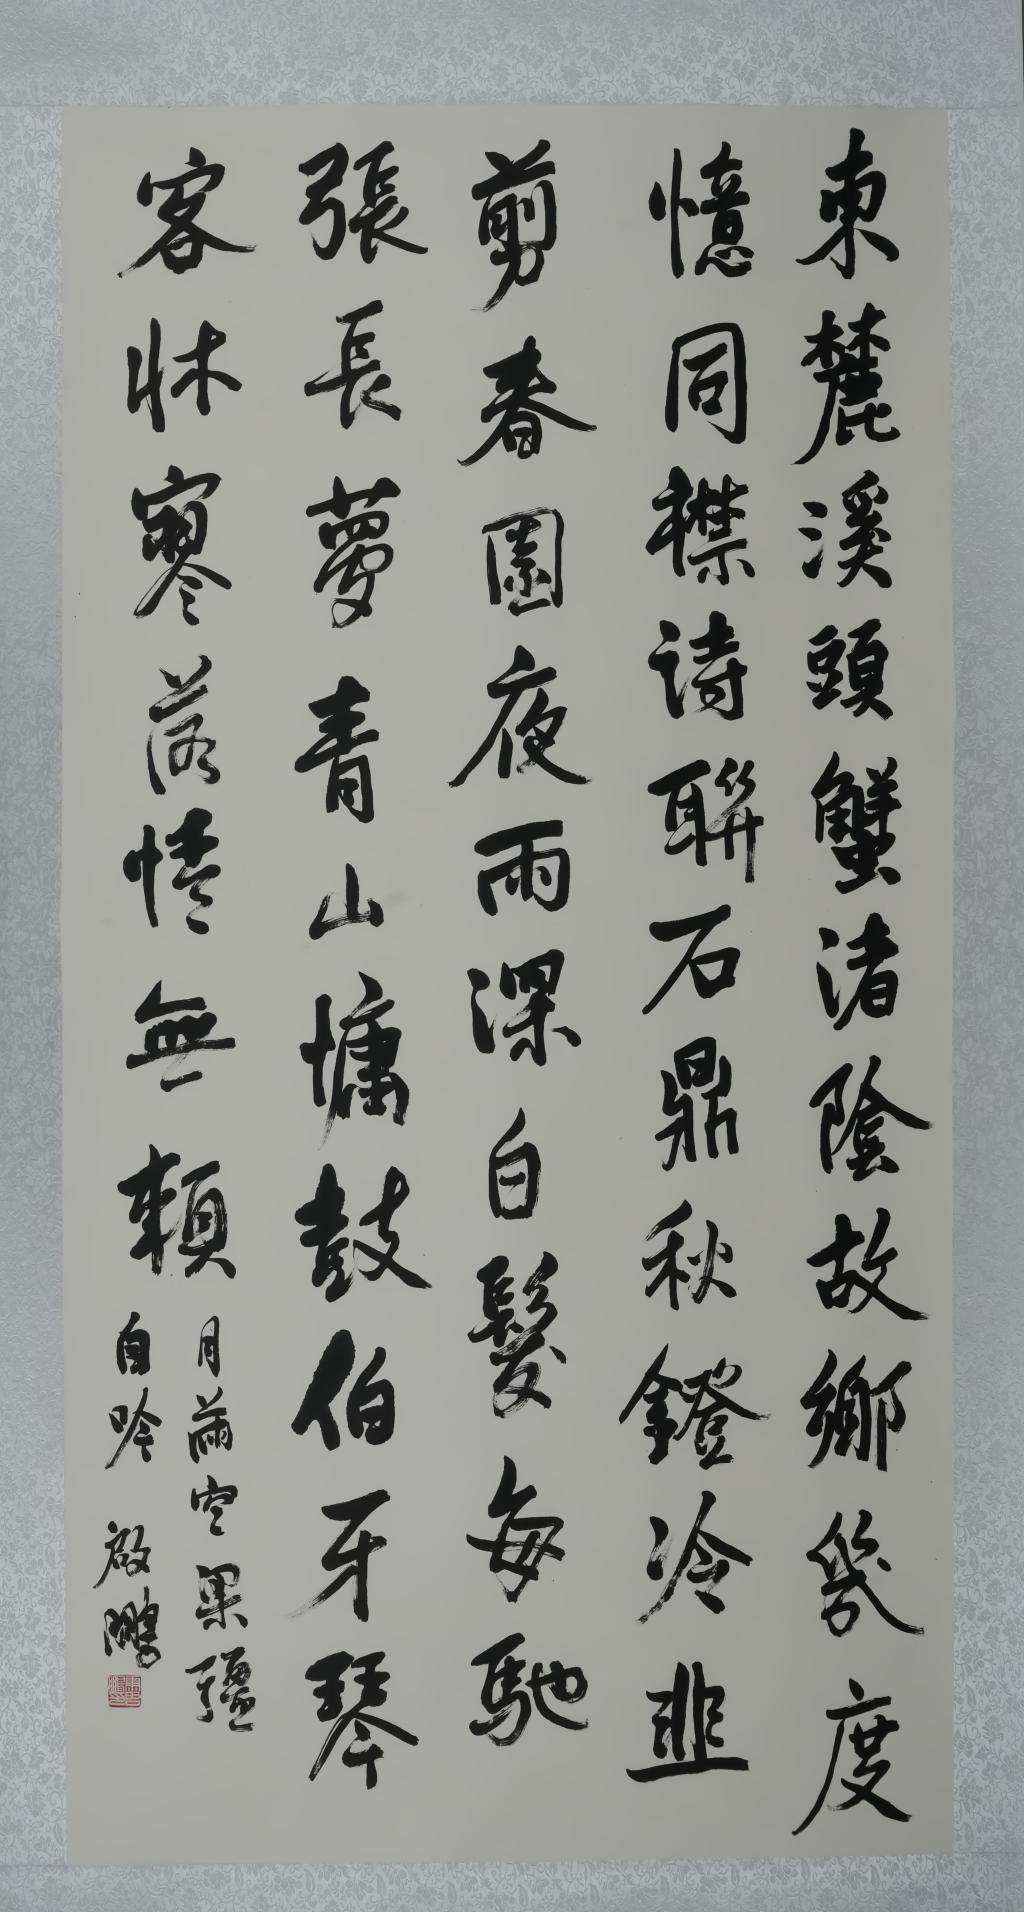 東麓溪頭蟹渚陰故鄉幾度
憶同襟詩聯石鼎秋鐙冷韭
剪春園夜雨深白髮每馳
張長夢青山墉鼓伯牙琴
客牀寥落情無賴
月
自吟 啟鵬